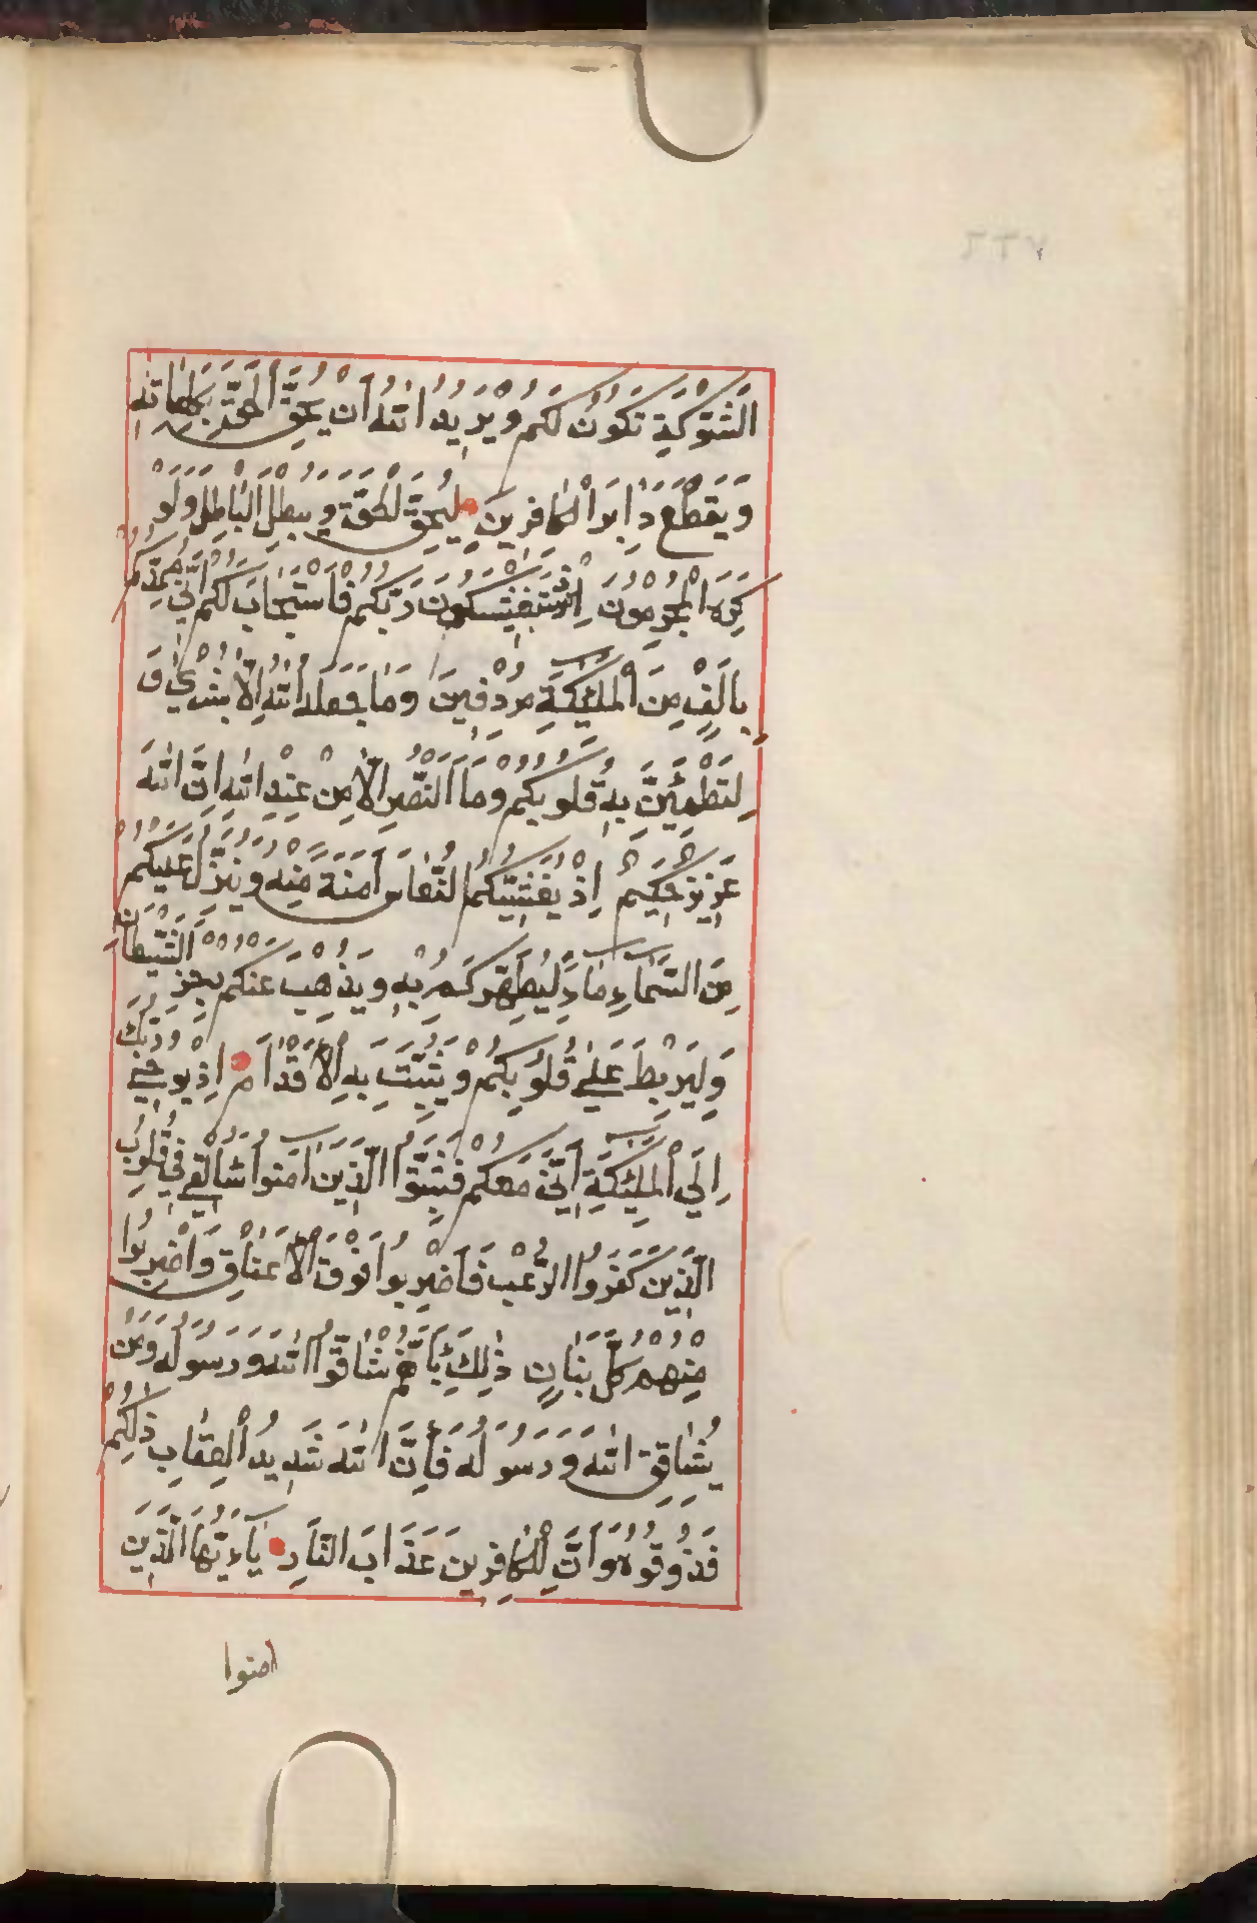 الشَّوْكَةِ تَكُونُ لَكُمْ وَيُرِيدُ اللهُ أَنْ يُحِقَّ الْحَقَّ بِكَلِمَاتِهِ
وَيَقْطَعَ دَابِرَ الْكَافِرِينَ لِيُحِقَّ الْحَقَّ وَيُبْطِلَ الْبَاطِلَ وَلَوْ
كَرِهَ الْمُجْرِمُونَ إِذْ تَسْتَغِيثُونَ رَبَّكُمْ فَاسْتَجَابَ لَكُمْ أَنِّي مُمِدُّكُمْ
بِأَلْفٍ مِنَ الْمَلَئِكَةِ مُرْدِفِينَ وَمَا جَعَلَهُ اللهُ إِلَّا بُشْرَى وَ
لِتَطْمَئِنَّ بِهِ قُلُوبُكُمْ وَمَا النَّصْرُ إِلَّا مِنْ عِنْدِ اللهِ إِنَّ اللهَ
عَزِيزٌ حَكِيمٌ إِذْ يُغَشِّيكُمُ النُّعَاسَ أَمَنَةً مِنْهُ وَيُنَزِّلُ عَلَيْكُمْ
مِنَ السَّمَاءِ مَاءً لِيُطَهِّرَكُمْ بِهِ وَيُذْهِبَ عَنْكُمْ رِجْزَ الشَّيْطَانِ
وَلِيَرْبِطَ عَلَى قُلُوبِكُمْ وَيُثَبِّتَ بِهِ الْأَقْدَامَ إِذْ يُوحِي رَبُّكَ
إِلَى الْمَلَئِكَةِ أَنِّي مَعَكُمْ فَثَبِّتُوا الَّذِينَ آمَنُوا سَأُلْقِي فِي قُلُوبِ
الَّذِينَ كَفَرُوا الرُّعْبَ فَاضْرِبُوا فَوْقَ الْأَعْنَاقِ وَاضْرِبُوا
مِنْهُمْ كُلَّ بَنَانٍ ذَلِكَ بِأَنَّهُمْ شَاقُّوا اللهَ وَرَسُولَهُ وَمَنْ
يُشَاقِقِ اللهَ وَرَسُولَهُ فَإِنَّ اللهَ شَدِيدُ الْعِقَابِ ذَلِكُمْ
فَذُوقُوهُ وَأَنَّ لِلْكَافِرِينَ عَذَابَ النَّارِ يَاءَيُّهَا الَّذِينَ
امنوا